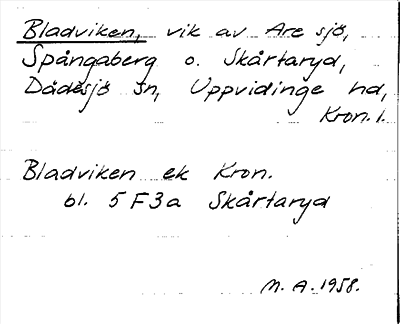 Bladviken, vik av Are sjö,
Spångaberg o. Skårtaryd,
Dädesjö sn, Uppvidinge hd,
Kron. l.
Bladviken ek Kron.
bl. 5 F 3 a Skårtaryd
M. A. 1958.